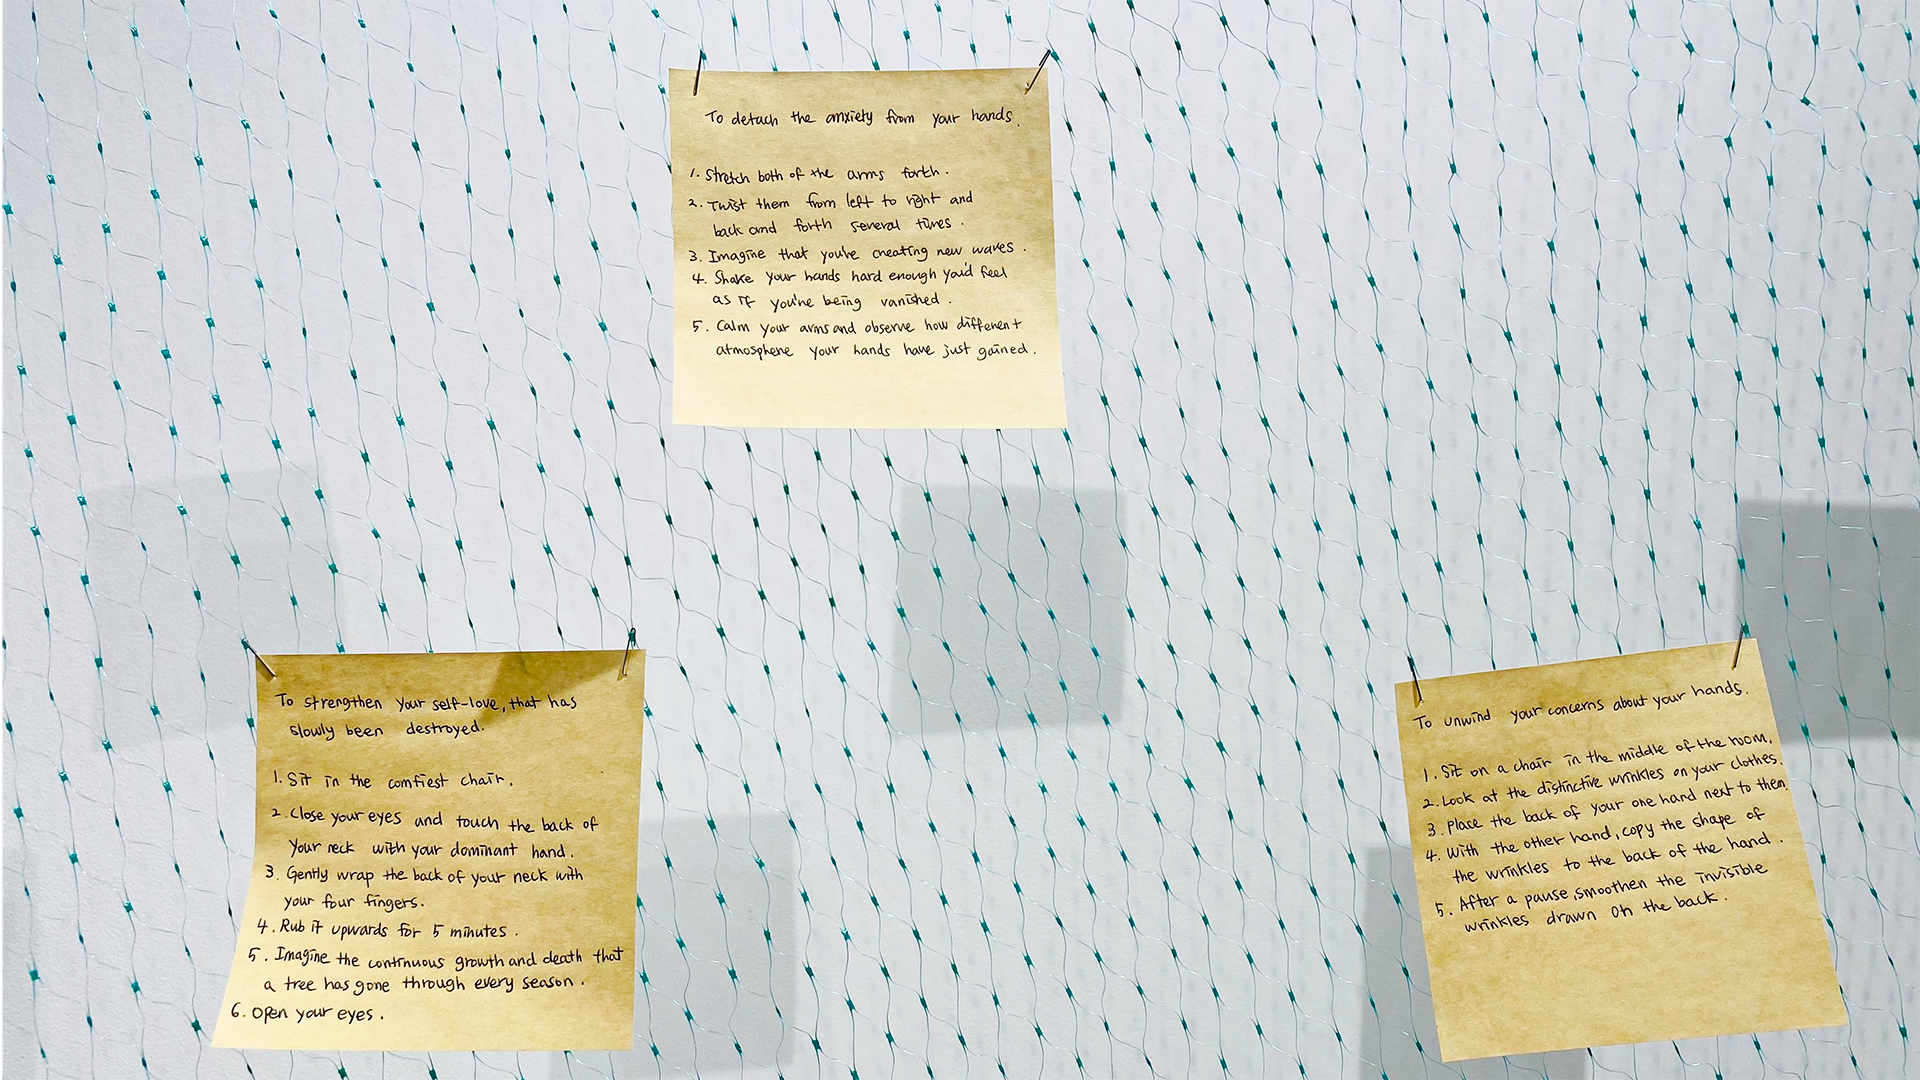 To detach the anxiety from your hands.
1. Stretch both of the arms forth.
2. Twist them from left to right and
back and forth several times.
3. Imagine that you're creating new waves.
4. Shake your hands hard enough you'd feel
as if you're being vanished.
5. Calm your arms and observe how different
atmosphere your hands have just gained.
To strengthen your self-love, that has
slowly been destroyed.
1. Sit in the comfiest chair.
2. Close your eyes and touch the back of
your neck with your dominant hand.
3. Gently wrap the back of your neck with
your four fingers.
4. Rub it upwards for 5 minutes.
5. Imagine the continuous growth and death that
a tree has gone through every season.
6. Open your eyes.
To unwind your concerns about your hands.
1. Sit on a chair in the middle of the room.
2. Look at the distinctive wrinkles on your clothes.
3. Place the back of your one hand next to them.
4. With the other hand, copy the shape of
the wrinkles to the back of the hand.
5. After a pause, smoothen the invisible
wrinkles drawn on the back.